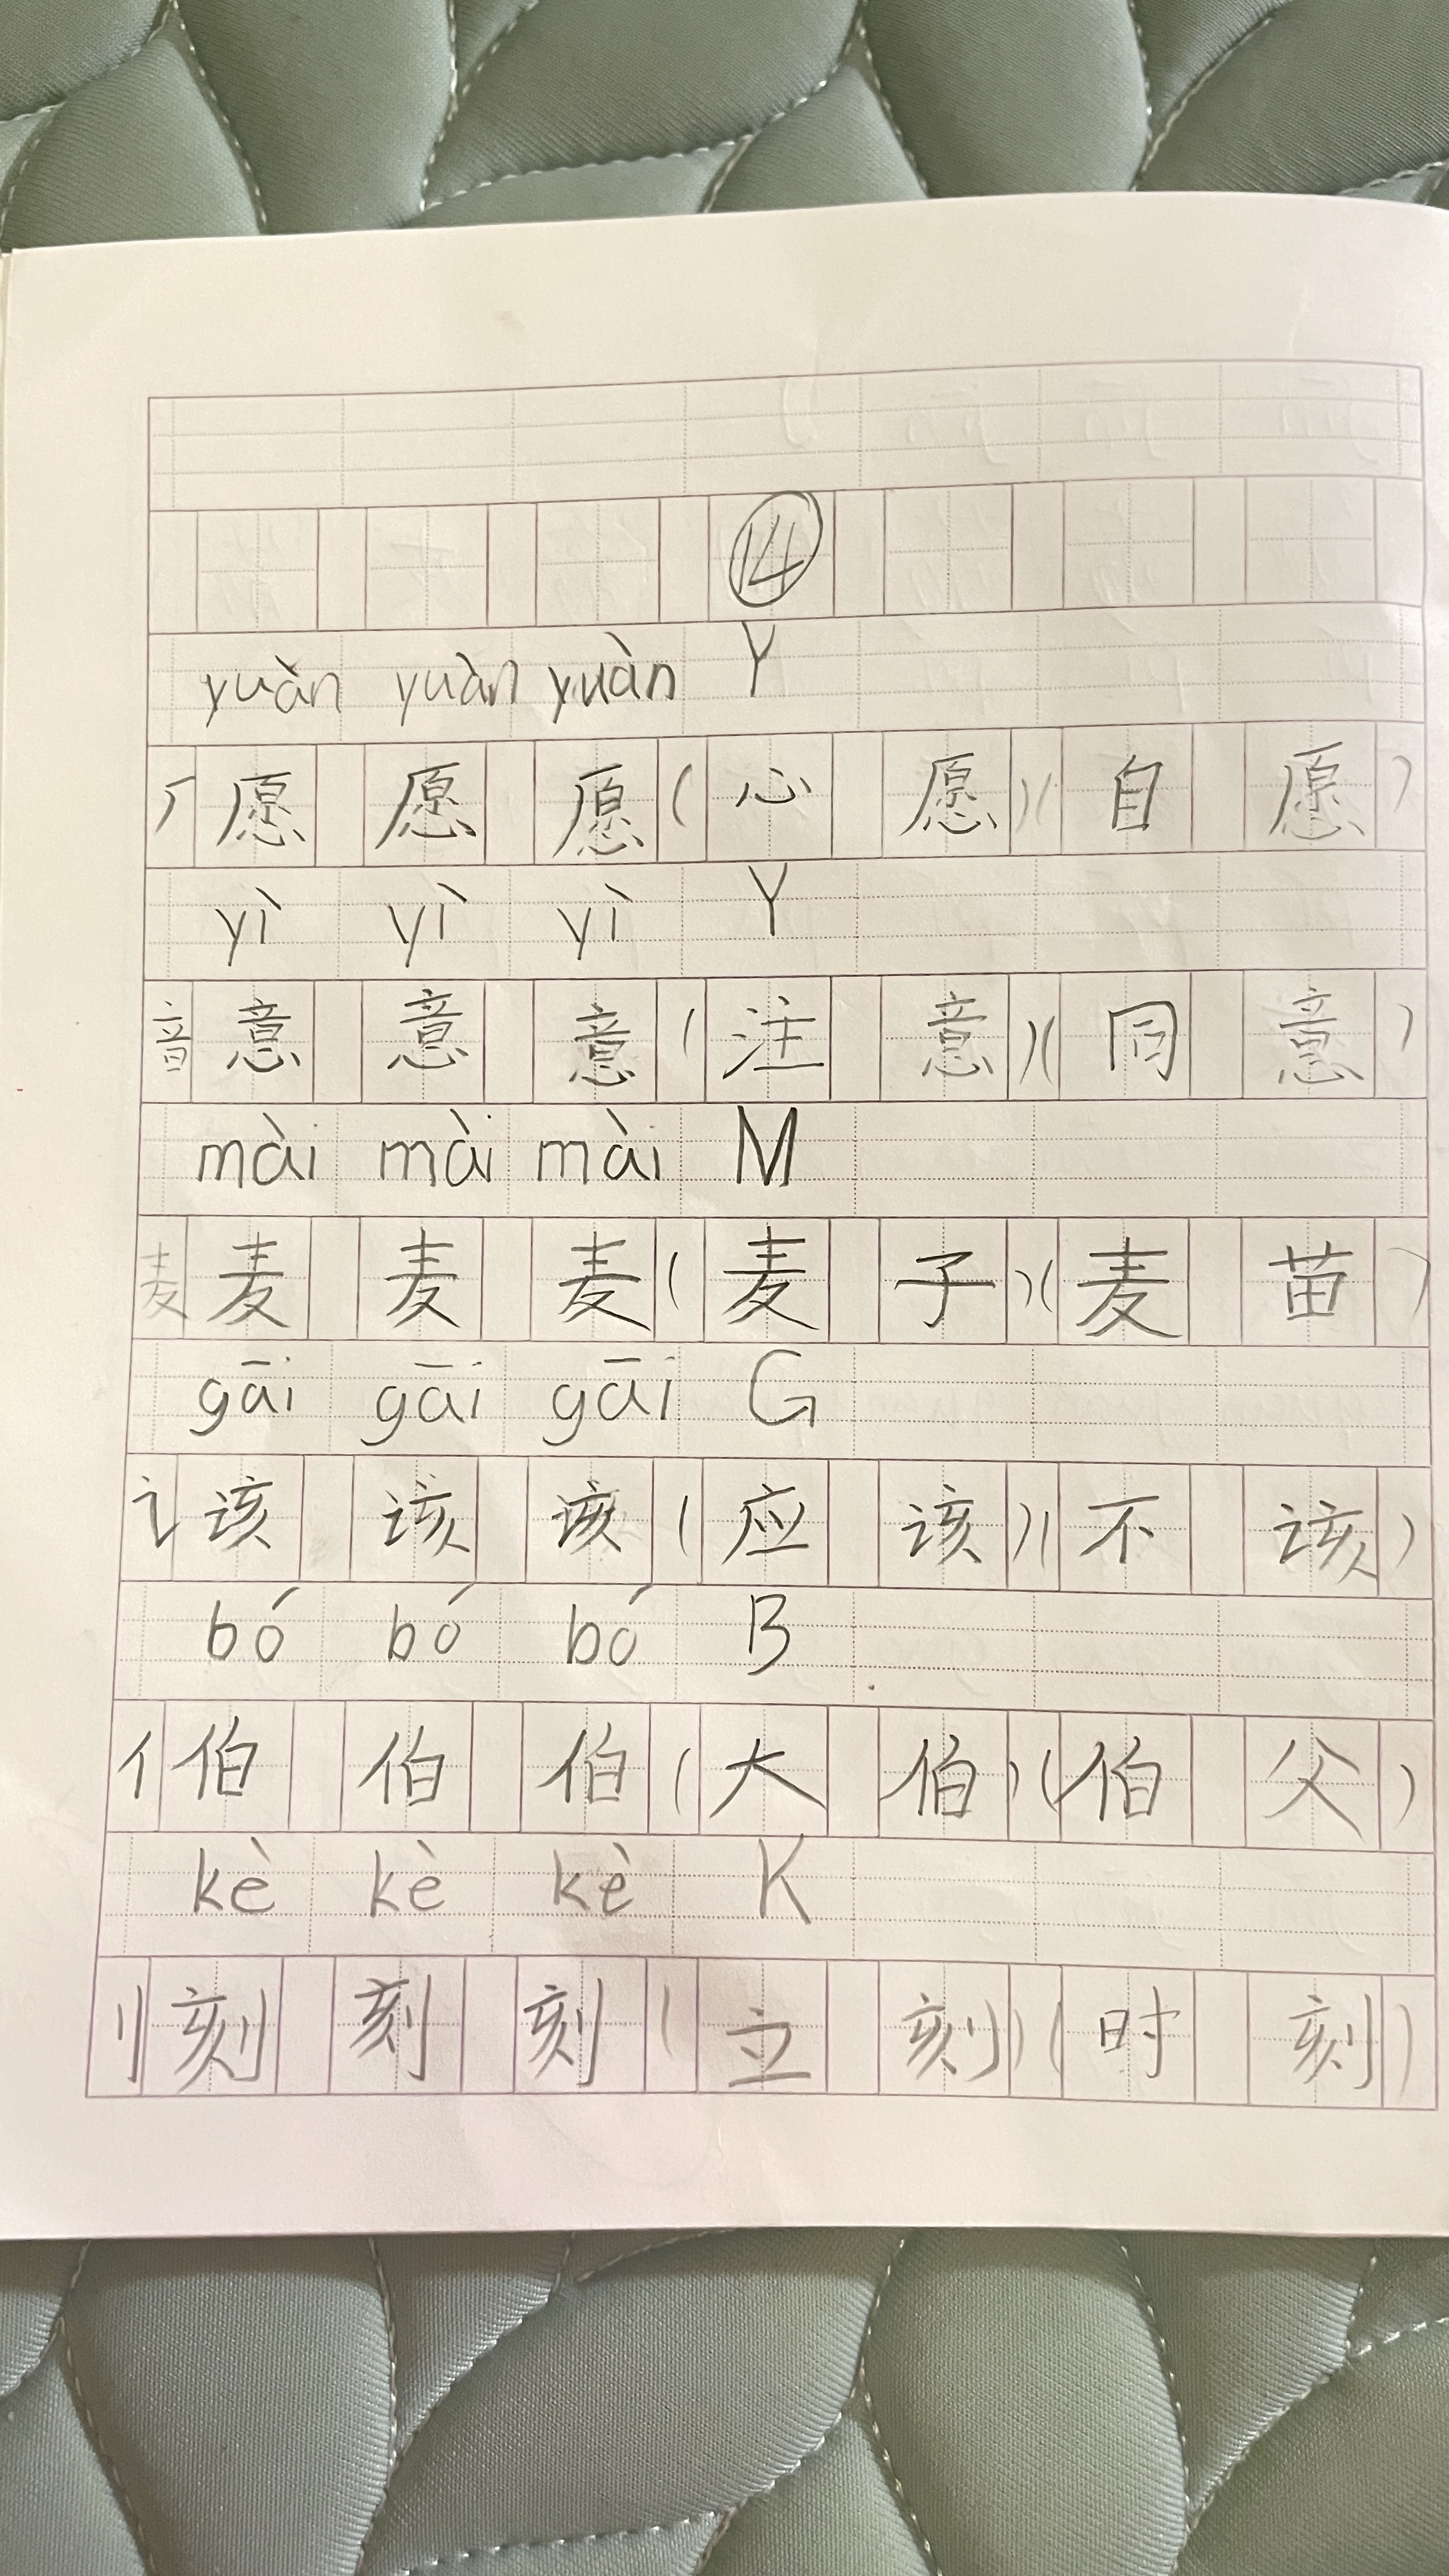 ⑭
yuàn yuàn yuàn Y
厂 愿 愿 愿 (心 愿)(自 愿)
yì yì yì Y
音 意 意 意 (注 意)(同 意)
mài mài mài M
麦 麦 麦 麦 (麦 子)(麦 苗)
gāi gāi gāi G
讠 该 该 该 (应 该)(不 该)
bó bó bó B
亻 伯 伯 伯 (大 伯)(伯 父)
kè kè kè K
刂 刻 刻 刻 (立 刻)(时 刻)